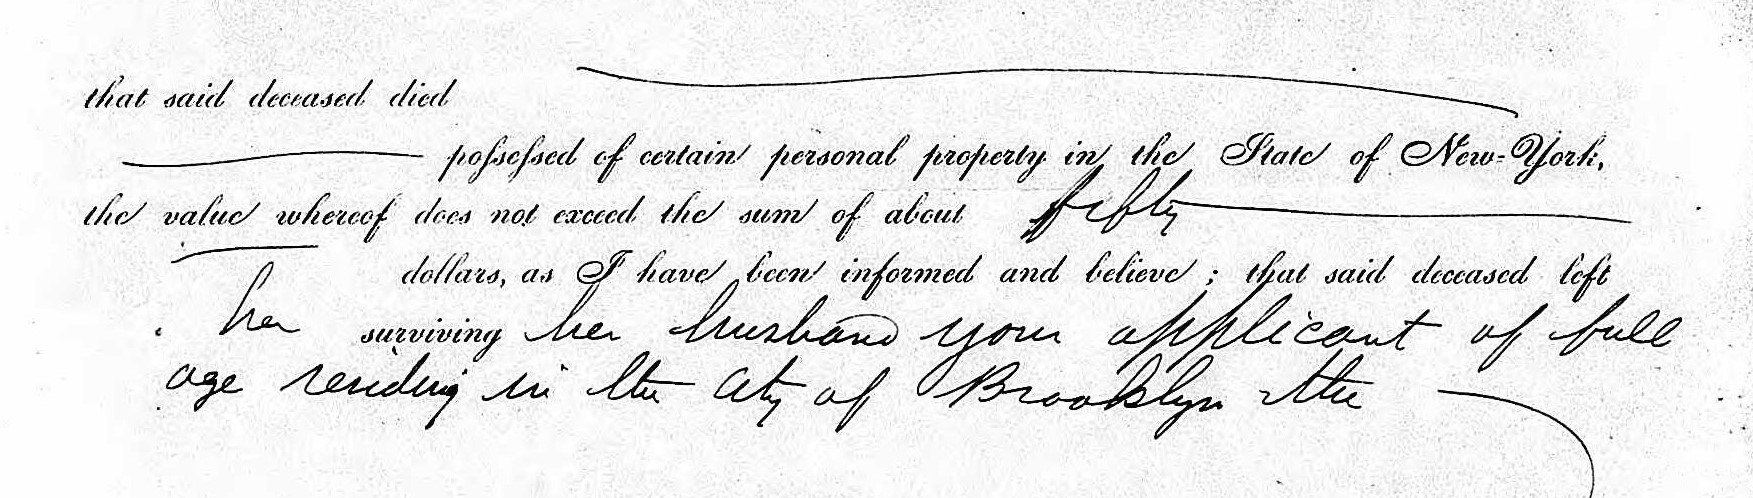 that said deceased died
possessed of certain personal property in the State of New-York,
the value whereof does not exceed the sum of about fifty
dollars, as I have been informed and believe; that said deceased left
her surviving her husband your applicant of full
age residing in the City of Brooklyn the